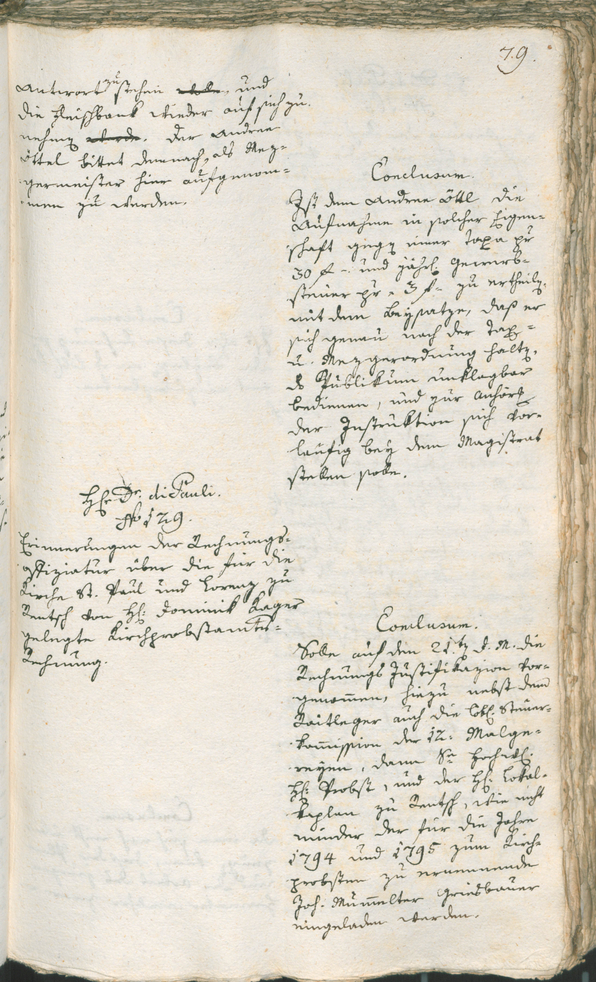 79.
Antwort zustehen wolle, und
die Fleischbank wieder auf sich zu
nehmen. Der Andree
Öttel bittet demnach, als Mez-
germeister hier aufgenom-
men zu werden.
Conclusum.
Ist dem Andree Öttl die
Aufnahme in solcher Eigen-
schaft gegen einer Taxa pr
30 f. und jährl. Gewerbs-
steuer pr. 3 f. zu ertheilen,
mit dem Beysatze, daß er
sich genau nach der Tax-
u. Mezgerordnung halten,
ds Publikum unklagbar
bedienen, und zur Anhörg
der Instruktion sich vor-
läufig bey dem Magistrat
stellen solle.
Hr. Dr. di Pauli.
No 129.
Erinnerungen der Rechnungs-
offiziatur über die für die
Kirche St. Paul und Lorenz zu
Rentsch von H: Dominik Kager
gelegte Kirchprobstamts-
Rechnung.
Conclusum.
Solle auf den 21.t d. M. die
Rechnungs Justifikazion vor-
genommen, hiezu nebst dem
Raitleger auch die löbl. Steuer-
kommission der 12. Malge-
reyen, dann Se Hochw.
H: Probst, und der H: Lokal-
kaplan zu Rentsch, wie nicht
minder der für die Jahre
1794 und 1795 zum Kirch-
probsten zu ernennende
Joh. Mumelter Griesbauer
eingeladen werden.